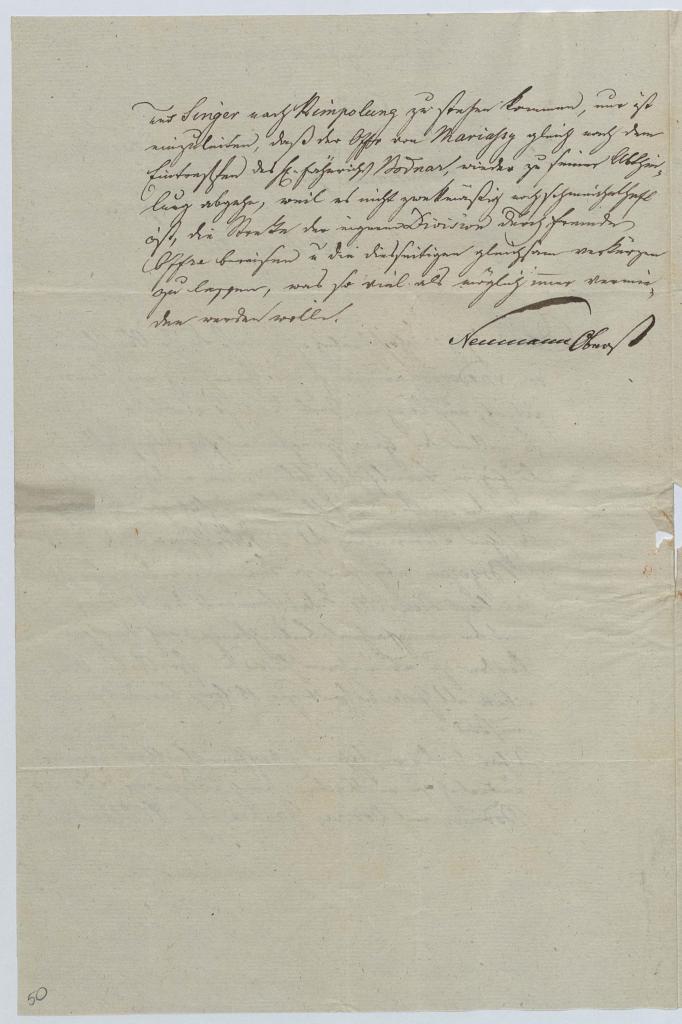 und Singer nach Kimpolung zu stehen kommen, nur ist
einzuleiten, daß der Offr von Mariassy gleich nach dem
Eintreffen des H. Fähnrichs Bodnar, wieder zu seiner Abthei-
lung abgehe, weil es nicht zwekmäßig noch schmeichelhaft
ist, die Streke der eigenen Division durch fremde
Offre bereisen u die diesseitigen gleichsam verkürzen
zu lassen, was so viel als möglich immer vermie-
den werden wolle.
Neumann Oberst
50